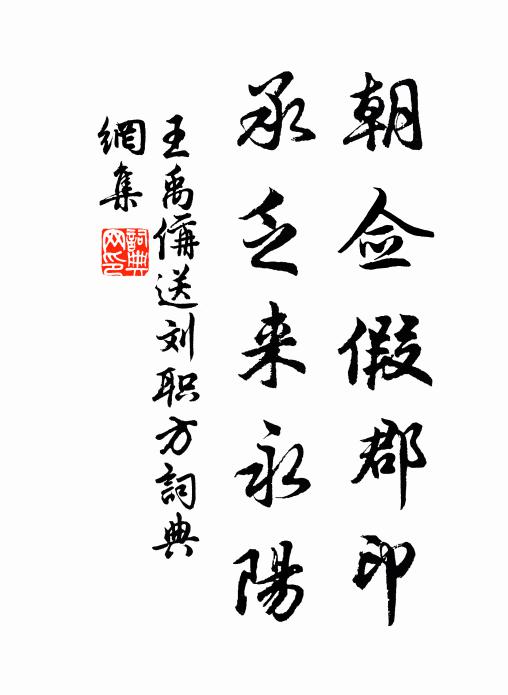 朝佥假郡印
承乏来永陽
王禹偁送刘职方詞典
網集
詞典网印